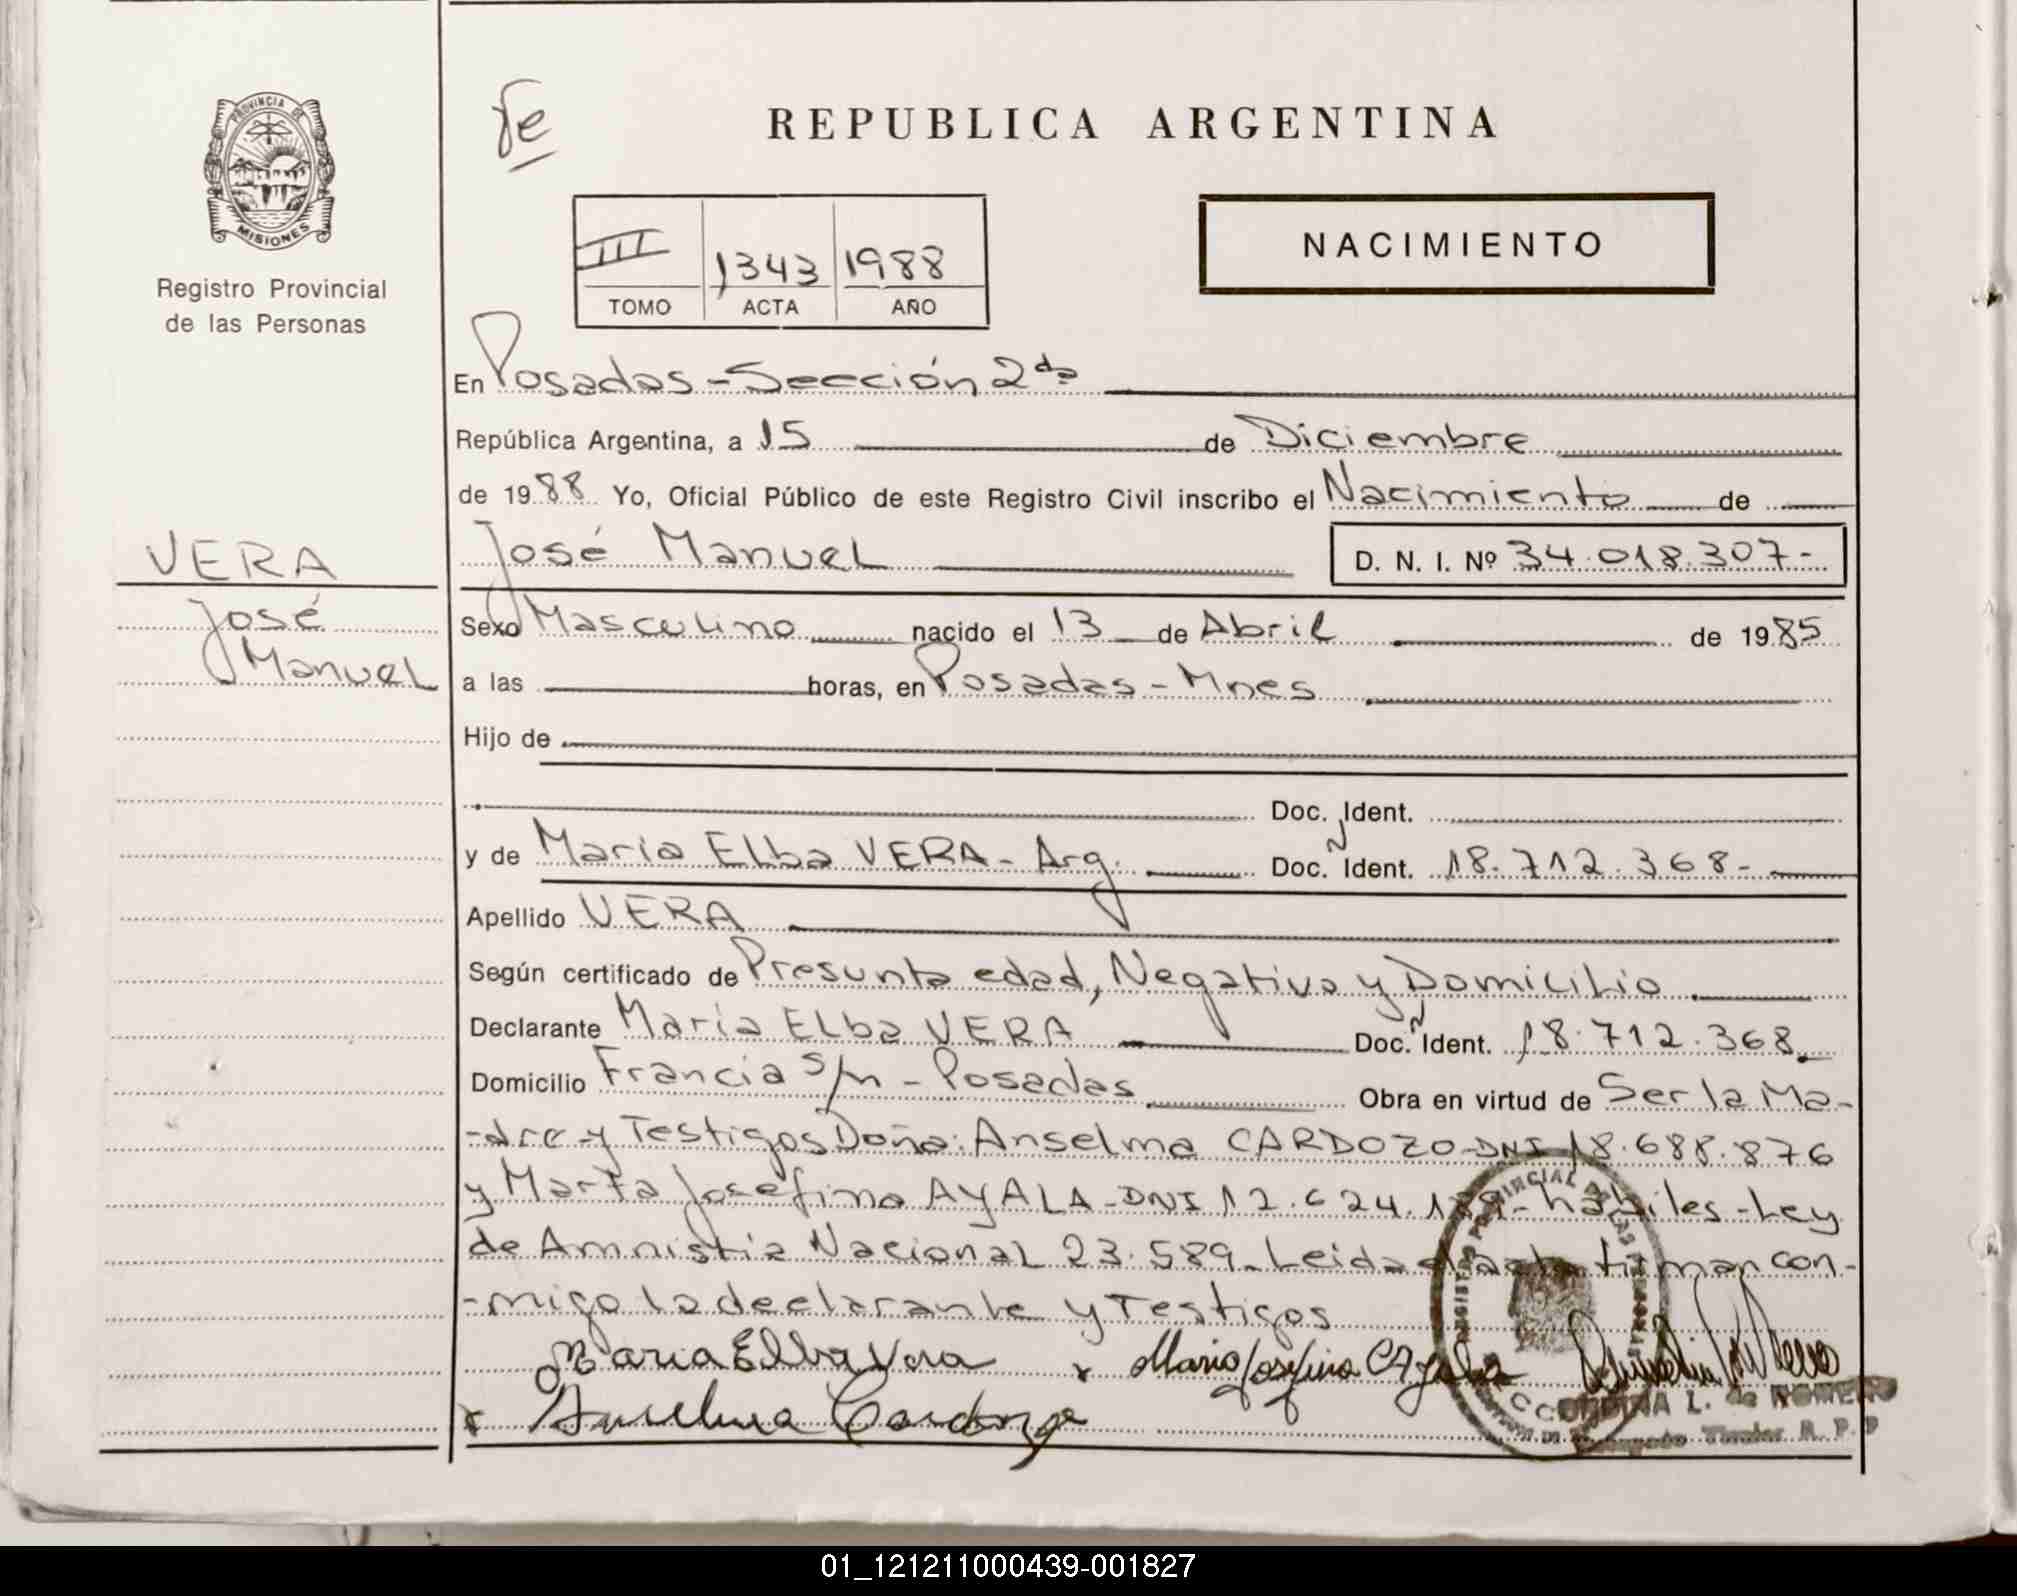 PROVINCIA DE
MISIONES
Registro Provincial
de las Personas
VERA
José
Manuel
REPUBLICA ARGENTINA
III 1343 1988
TOMO ACTA AÑO
NACIMIENTO
En Posadas - Sección 2da
República Argentina, a 15 de Diciembre
de 1988 Yo, Oficial Público de este Registro Civil inscribo el Nacimiento de
José Manuel D. N. I. Nº 34.018.307-
Sexo Masculino nacido el 13 de Abril de 1985
a las horas, en Posadas - Mnes
Hijo de
Doc. Ident.
y de María Elba VERA - Arg. Doc. Ident. 18.712.368-
Apellido VERA
Según certificado de Presunta edad, Negativo y Domicilio
Declarante María Elba VERA Doc. Ident. 18.712.368.
Domicilio Francia s/n - Posadas Obra en virtud de Ser la Ma-
-dre y Testigos Doña: Anselma CARDOZO - DNI 18.688.876
y Marta Josefina AYALA - DNI 12.624. - hábiles - Ley
de Amnistía Nacional 23.589 - Leida el acta firman con-
-migo la declarante y Testigos
Maria Elba Vera x Maria Josefina Ayala
x Anselma Cardozo
L. de ROMERO
Titular R. P. P
01_121211000439-001827